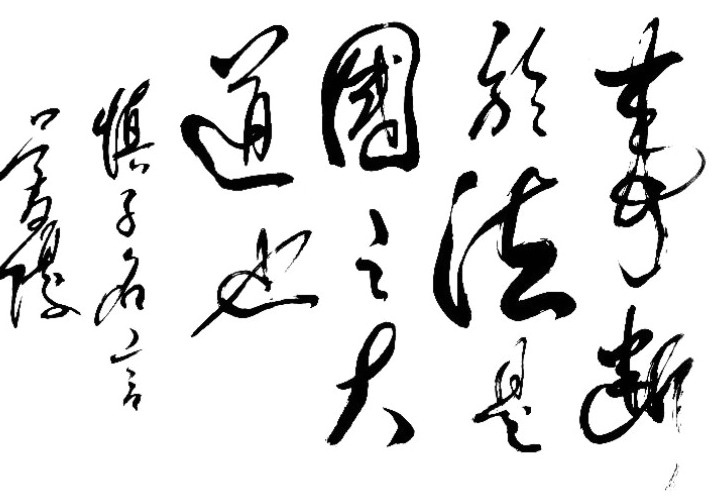 事断
於法是
國之大
道也
慎子名言